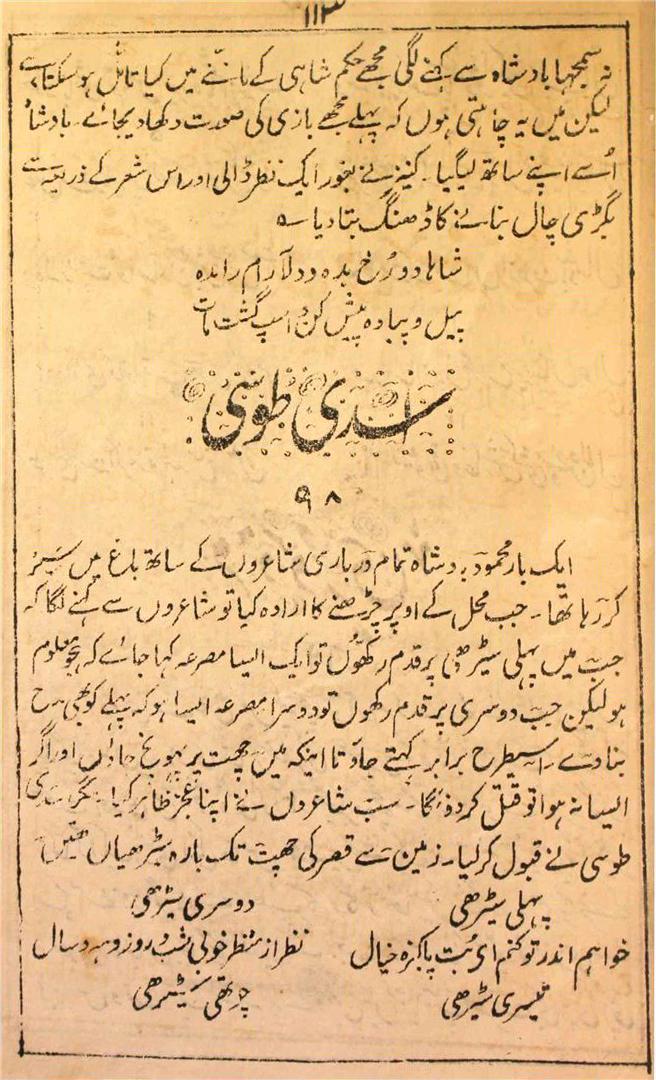 ۱۱۳
نہ سمجہا بادشاہ سے کہنے لگی مجھے حکم شاہی کے ماننے میں کیا تامل ہو سکتا ہے
لیکن میں یہ چاہتی ہوں کہ پہلے مجھے بازی کی صورت دکھا دیجائے۔ بادشاہ
اُسے اپنے ساتھ لیگیا۔ کنیز نے بغور ایک نظر ڈالی اور اس شعر کے ذریعہ سے
بگڑی چال بنانے کا ڈھنگ بتا دیا ؎
شاہا دو رُخ بدہ و دلارام را مدہ
پیل و پیادہ پیش کن و اسپ گشت مات
اسدی طوسی
۹۸
ایک بار محمود بادشاہ تمام درباری شاعروں کے ساتھ باغ میں سیر
کر رہا تھا۔ جب محل کے اوپر چڑھنے کا ارادہ کیا تو شاعروں سے کہنے لگا کہ
جب میں پہلی سیڑھی پر قدم رکھوں تو ایک ایسا مصرعہ کہا جائے کہ ہجو معلوم
ہو لیکن جب دوسری پر قدم رکھوں تو دوسرا مصرعہ ایسا ہو کہ پہلے کو بھی مدح
بنا دے۔ اسیطرح برابر کہتے جاؤ تا اینکہ میں چھت پر پہونچ جاؤں اور اگر
ایسا نہ ہوا تو قتل کر دوںگا۔ سب شاعروں نے اپنا عجز ظاہر کیا۔ مگر اسدی
طوسی نے قبول کر لیا۔ زمین سے قصر کی چھت تک بارہ سیڑھیاں تھیں
پہلی سیڑھی دوسری سیڑھی
خواہم اندر تو کنم ای بُت پاکیزہ خیال نظر از منظر خوبی شب و روز و مہ و سال
تیسری سیڑھی چوتھی سیڑھی